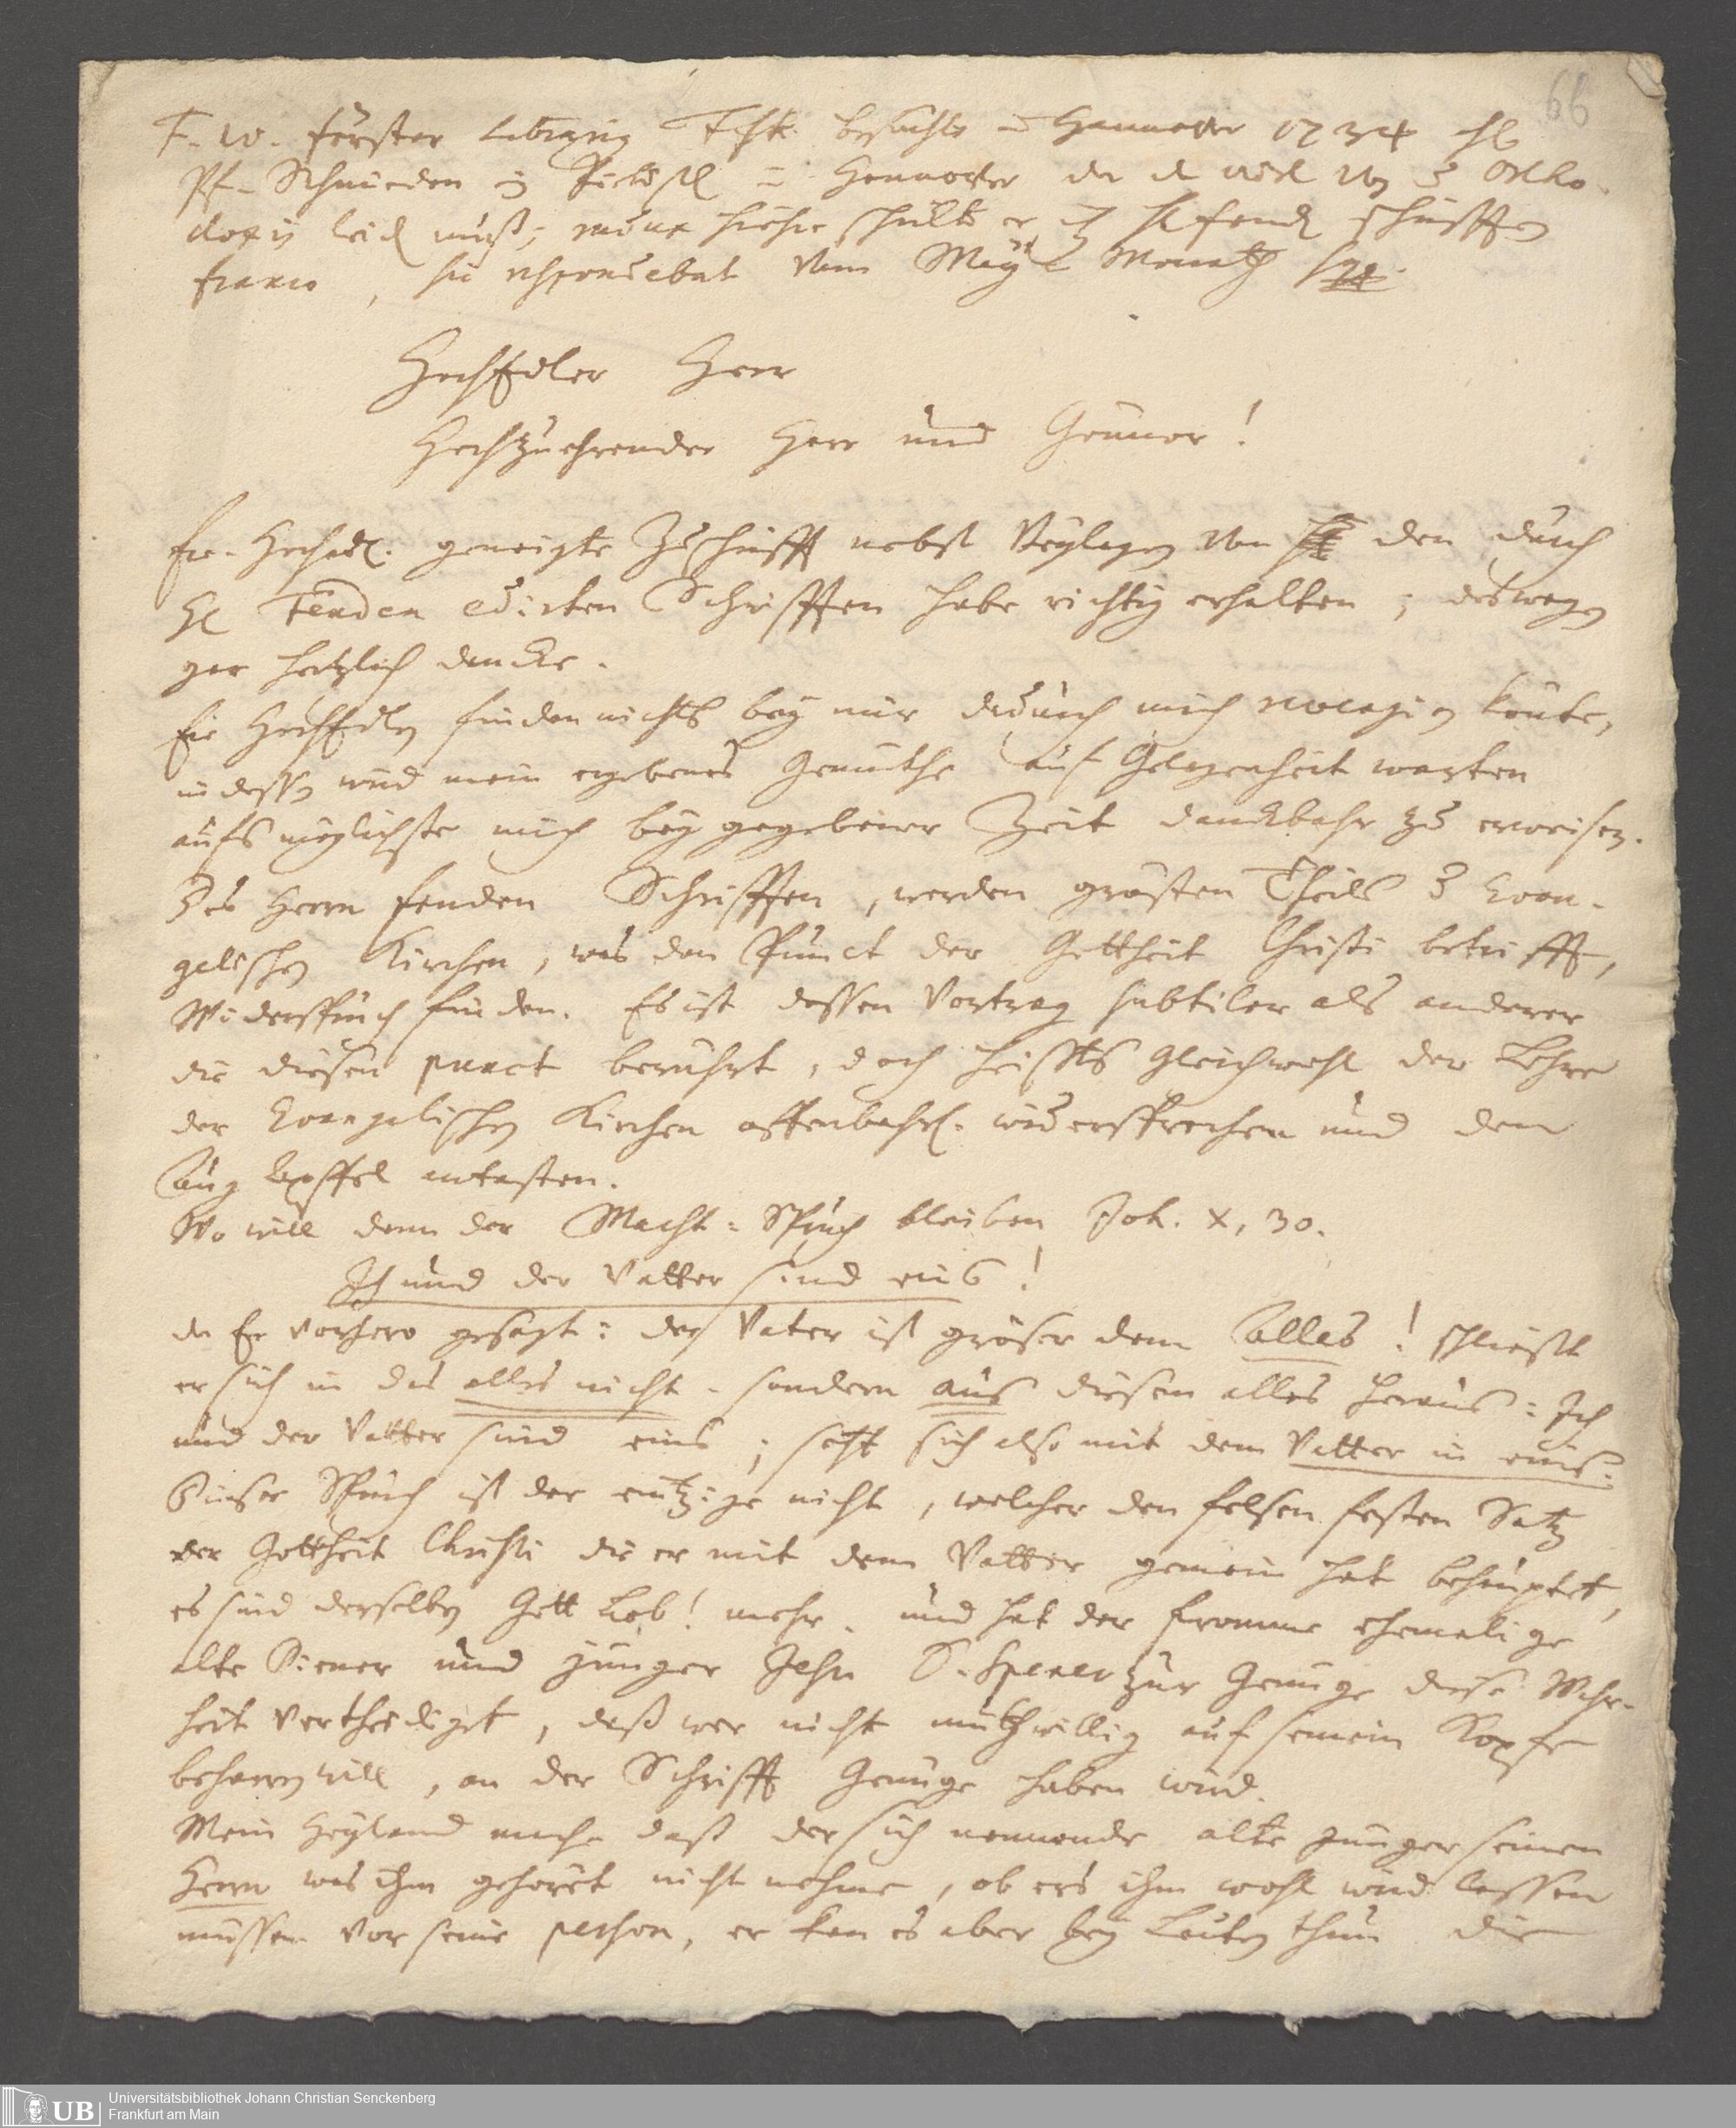 66
F. W. Förster besuchte Hannover 1734
Pf. Schmieden Hannover da
muß;
franco, respondebat vom May Monath
HochEdler Herr
Hochzuehrender Herr und Gönner!
Ew. Hochedl. geneigte Zuschrifft nebst Beylagen von den durch
H. Fenden edirten Schrifften habe richtig erhalten; deswegen
gar hertzlich dancke.
Ew HochEdlen finden nichts bey mir dadurch mich könte,
indessen wird mein ergebenes Gemüthe auf Gelegenheit warten
aufs möglichste mich bey gegebener Zeit danckbahr zu erweisen.
Des Herrn Fenden Schrifften, werden grösten Theils Evan-
gelischen Kirchen, was den Punct der Gottheit Christi betrifft,
Widerspruch finden. Es ist dessen Vortrag subtiler als anderer
die diesen punct berührt, doch heists gleichwohl der Lehre
der Evangelischen Kirchen offenbahrl. widersprechen und den
Augapffel antasten.
Wo will denn der Macht-Spruch bleiben Joh. X, 30.
Ich und der Vatter sind eins!
da Er vorhero gesagt: der Vater ist gröser denn alles! schliest
er sich in das alles nicht, sondern aus diesen alles heraus: Ich
und der Vatter sind eins; setzt sich also mit dem Vatter in eins.
Dieser Spruch ist der eintzige nicht, welcher den felsen festen Satz
der Gottheit Christi die er mit dem Vatter gemein hat behauptet,
es sind derselben Gott Lob! mehr, und hat der fromme ehemalige
alte Diener und Junger Jesu D. Spener zur Genüge diese Wahr-
heit vertheidiget, daß wer nicht muthwillig auf seinem Kopfe
beharren will, an der Schrifft Genüge haben wird.
Mein Heyland mache daß der sich nennende alte Junger seinem
Herrn was ihm gehöret nicht nehme, ob ers ihm wohl wird lassen
müssen vor seine person, er kan es aber bey Leuten thun die
UB
Universitätsbibliothek Johann Christian Senckenberg
Frankfurt am Main